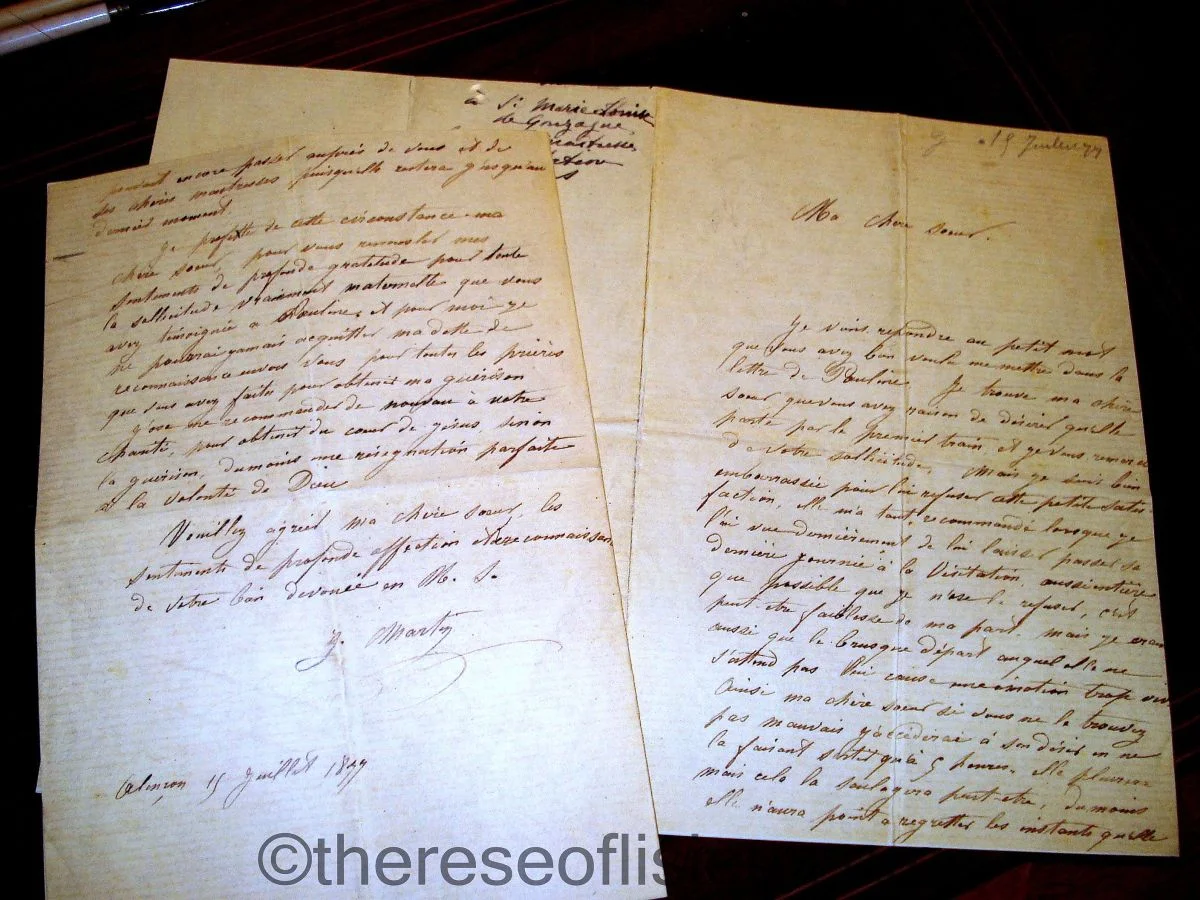 à Sr Marie Louise
de Gonzague
15 Juillet 77
Ma chère soeur.
Je viens repondre au petit mot
que vous avez bien voulu me mettre dans la
lettre de Pauline. Je trouve ma chère
soeur que vous avez raison de désirer qu'elle
parte par le premier train, et je vous remercie
de votre sollicitude. Mais je suis bien
embarrassée pour lui refuser cette petite satis-
faction, elle m'a tant recommandé lorsque je
l'ai vue dernièrement de lui laisser passer sa
dernière journée à la Visitation, aussi entière
que possible que je n'ose le refuser, c'est
peut-être faiblesse de ma part. mais je crains
aussi que le brusque départ auquel elle ne
s'attend pas lui cause une émotion trop vive
Ainsi ma chère soeur si vous ne le trouvez
pas mauvais j'accèderai à son désir en ne
la faisant sortir qu'à 5 heures. elle pleurera
mais cela la soulagera peut-être, du moins
elle n'aura point à regretter les instants qu'elle
pouvait encore passer auprès de vous et de
ses chères maitresses puisqu'elle restera jusqu'au
dernier moment.
Je profite de cette circonstance ma
chère soeur, pour vous renouveler mes
sentiments de profonde gratitude pour toute
la sollicitude vraiment maternelle que vous
avez témoignée à Pauline, et pour moi je
ne pourrai jamais acquitter ma dette de
reconnaissance envers vous pour toutes les prières
que vous avez faites pour obtenir ma guérison
J'ose me recommander de nouveau à votre
charité, pour obtenir du coeur de Jésus, sinon
la guérison, du moins une résignation parfaite
à la volonté de Dieu
Veuillez agréer ma chère soeur, les
sentiments de profonde affection et de reconnaissance
de votre bien dévouée en N. S.
Z. Martin
Alençon 15 Juillet 1877
©thereseoflis